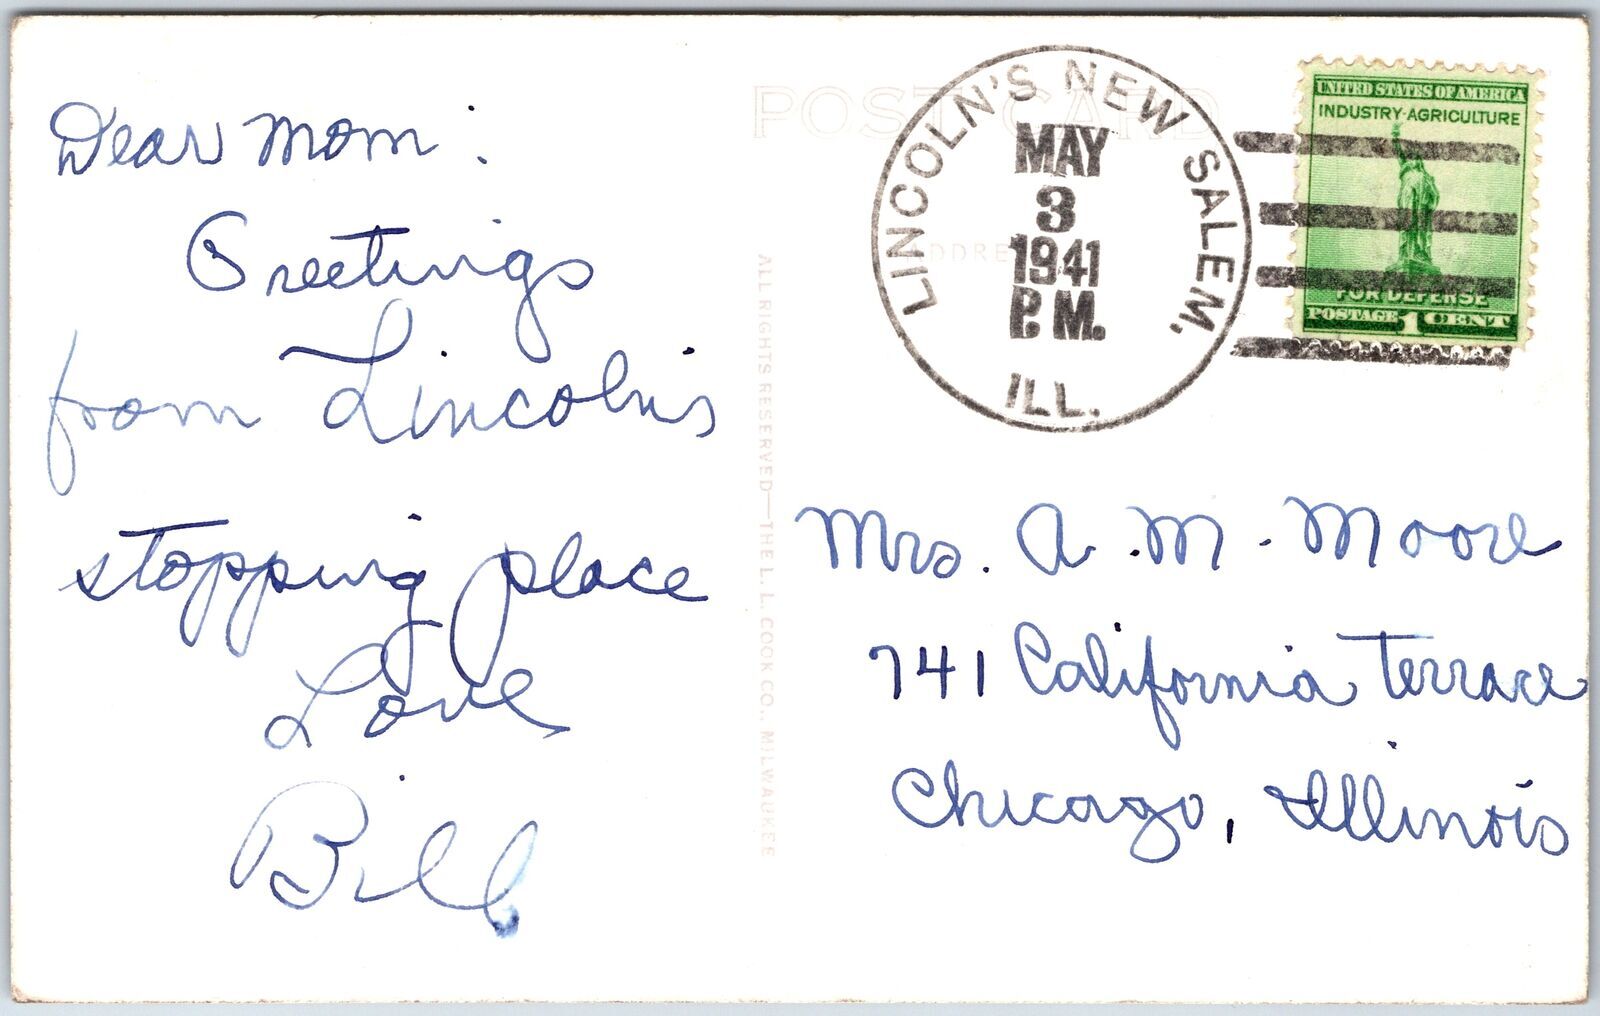 Dear Mom:
Greetings
from Lincoln's
stopping place
Love
Bill
POST CARD
ADDRE
ALL RIGHTS RESERVED—THE L. L. COOK CO., MILWAUKEE
LINCOLN'S NEW SALEM,
MAY
3
1941
P.M.
ILL.
UNITED STATES OF AMERICA
INDUSTRY-AGRICULTURE
FOR DEFENSE
POSTAGE 1 CENT
Mrs. A. M. Moore
741 California Terrace
Chicago, Illinois